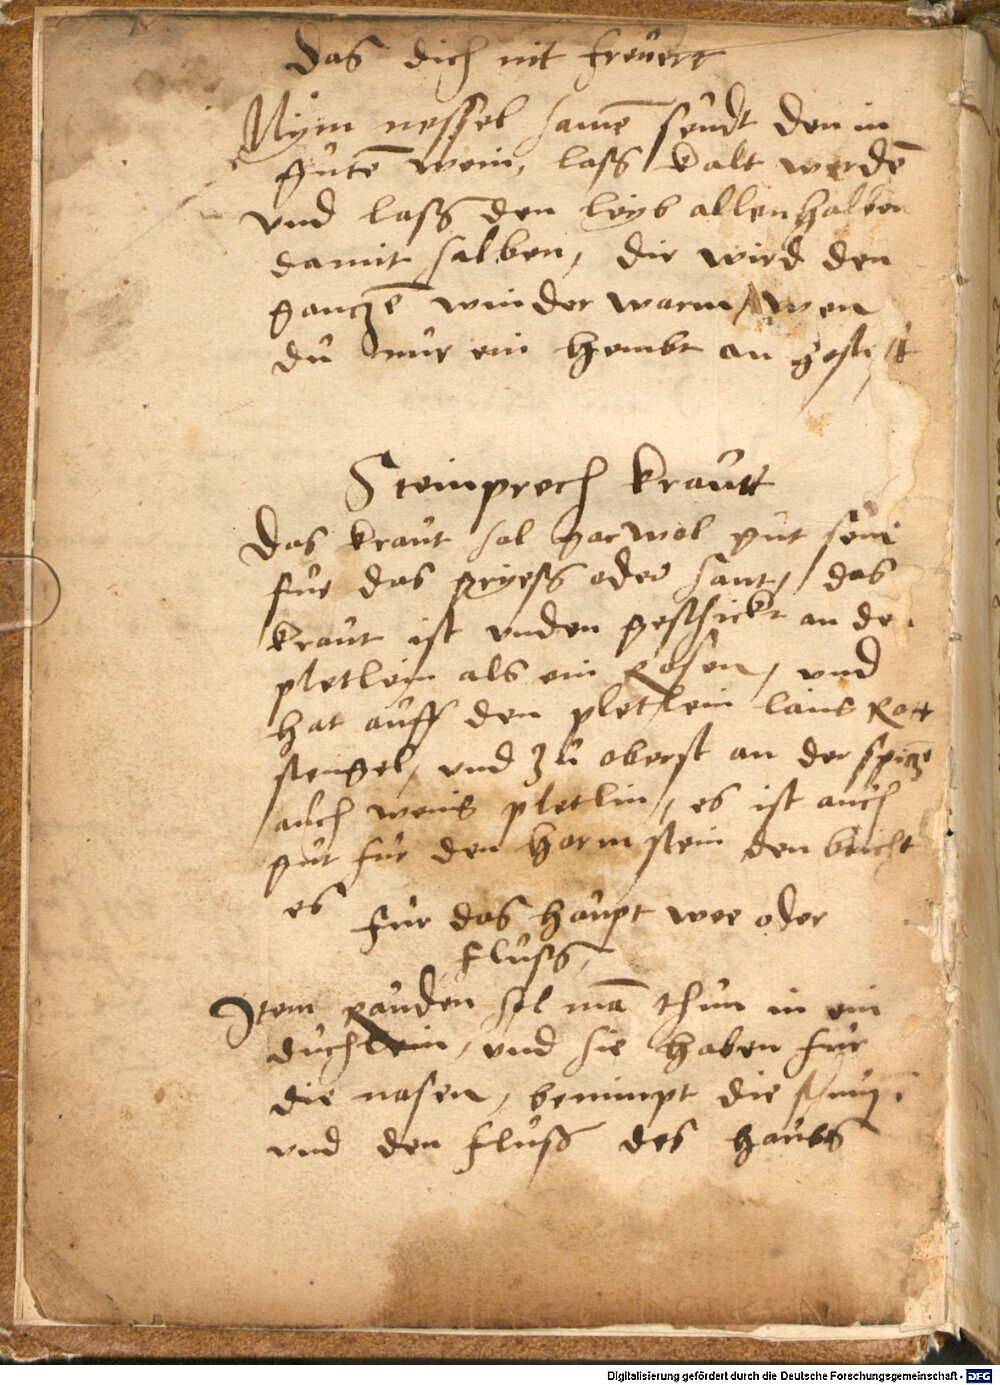 Das dich nit freuert
Nym nessel samē seudt den in
gutē wein, lass kalt werdē
vnd lass den leyb allenhalben
damit salben, dir wird den
gantzē winder warm, wen
du nur ein hembt an
Steinprech krautt
Das kraut sol gar wol gut sein
fur das gryess oder sant, das
kraut ist vnden geschickt an de
pletlein als ein Rosen, vnd
hat auff den pletlein Rott
stengel, vnd zu oberst an der spitz
auch weis pletlin, es ist auch
gut fur den harm stein den bricht
es
fur das haupt wee oder
fluss,
Item sol mā thun in ein
duchlein, vnd sie haben fur
die nasen, benimpt die
vnd den fluss des haubs
Digitalisierung gefördert durch die Deutsche Forschungsgemeinschaft - DFG